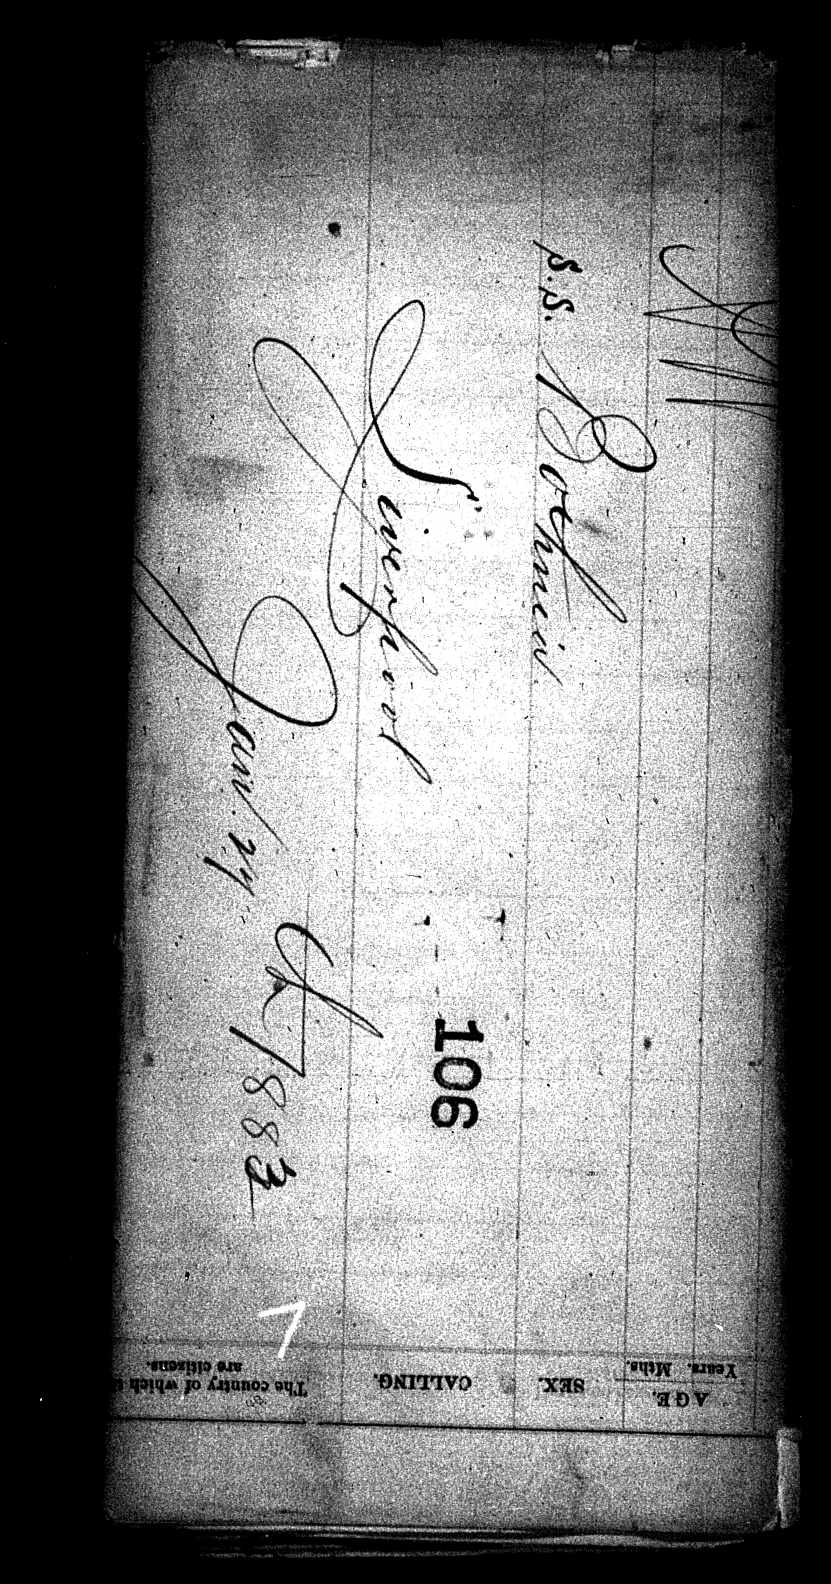 S.S. Bothnia
Liverpool
106
Jan'ry 4 1883
7
AGE.
Years. Mths.
SEX.
CALLING.
The country of which
are citizens.